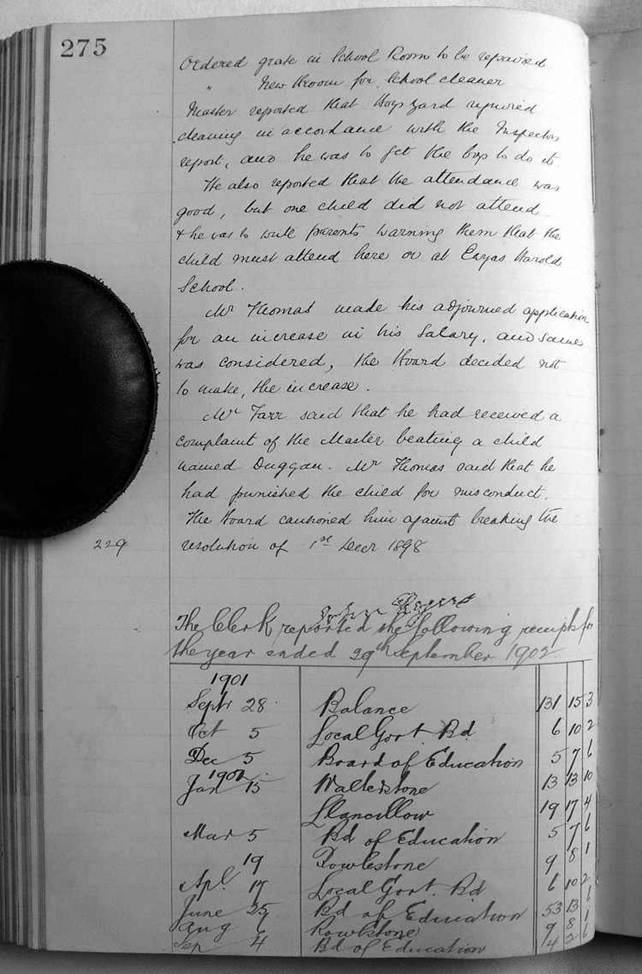 275
Ordered grate in School Room to be repaired
" New Broom for School cleaner
Master reported that Boys Yard required
cleaning in accordance with the Inspectors
report, and he was to get the boys to do it
He also reported that the attendance was
good, but one child did not attend
& he was to write parents warning them that the
child must attend here or at Ewyas Harold
School.
Mr Thomas made his adjourned application
for an increase in his Salary, and same
was considered, the Board decided not
to make, the increase.
Mr Farr said that he had received a
complaint of the Master beating a child
named Duggan. Mr Thomas said that he
had punished the child for misconduct.
The Board cautioned him against breaking the
229 resolution of 1st Decr 1898
The Clerk reported the following receipts for
the year ended 29th September 1902
1901
Septr 28 Balance 131 15 3
Oct 5 Local Govt Bd 6 10 2
Dec 5 Board of Education 5 7 6
1902
Jan 15 Walterstone 13 13 10
Llancillow 19 17 4
Mar 5 Bd of Education 5 7 6
19 Rowlestone 9 8 1
Apl 17 Local Govt. Bd 6 10 2
June 25 Bd of Education 53 13 6
Aug 6 Rowlstone 9 8 1
Sep 4 Bd of Education